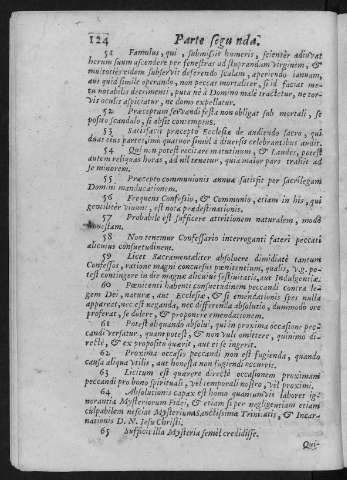 124 Parte segunda.
51 Famulus, qui, submissis humeris, scienter adiuvat
herum suum ascendere per fenestras ad stuprandam virginem, &
multoties eidem subservit deferendo scalam, aperiendo ianuam,
aut quid simile operando, non peccat mortaliter, si id faciat me-
tu notabilis detrimenti, puta nè à Domino male tractetur, ne tor-
vis oculis aspiciatur, ne domo expellatur.
52 Præceptum servandi festa non obligat sub mortali, se
posito scandalo, si absit contemptus.
53 Satisfacit præcepto Ecclesiæ de audiendo sacro, qui
duas eius partes, imo quatuor simul à diversis celebrantibus audit.
54 Qui non potest recitare matutinum, & Laudes, potest
autem reliquas horas, ad nil tenetur, quia maior pars trahit ad
se minorem.
55 Præcepto communionis annuæ satisfit per sacrilegam
Domini manducationem.
56 Frequens Confessio, & Communio, etiam in his, qui
gentiliter vivunt, est nota prædestinationis.
57 Probabile est sufficere attritionem naturalem, modò
honestam.
58 Non tenemur Confessario interroganti fateri peccati
alicuius consuetudinem.
59 Licet Sacramentaliter absolvere dimidiatè tantum
Confessos, ratione magni concursus pœnitentium, qualis, v.g. po-
test contingere in die magnæ alicuius festivitatis, aut Indulgentiæ.
60 Pœnitenti habenti consuetudinem peccandi contra le-
gem Dei, naturæ, aut Ecclesiæ, & si emendationis spes nulla
appareat, nec est neganda, nec differenda absolutio, dummodo ore
proferat, se dolere, & proponere emendationem.
61 Potest aliquando absolvi, qui in proxima occasione pec-
candi versatur, quam potest, & non vult omittere, quinimo di-
rectè, & ex proposito quærit, aut ei se ingerit.
62 Proxima occasio peccandi non est fugienda, quando
causa aliqua vtilis, aut honesta non fugiendi occurrit.
63 Licitum est quærere directè occasionem proximam
peccandi pro bono spirituali, vel temporali nostro, vel proximi.
64 Absolutionis capax est homo quantumvis laboret ig-
norantia Mysteriorum Fidei, & etiam si per negligentiam etiam
culpabilem nesciat Mysterium Sanctissimæ Trinitatis, & Incar-
nationis D. N. Jesu Christi.
65 Sufficit illa Mysteria semel credidisse.
Qui-